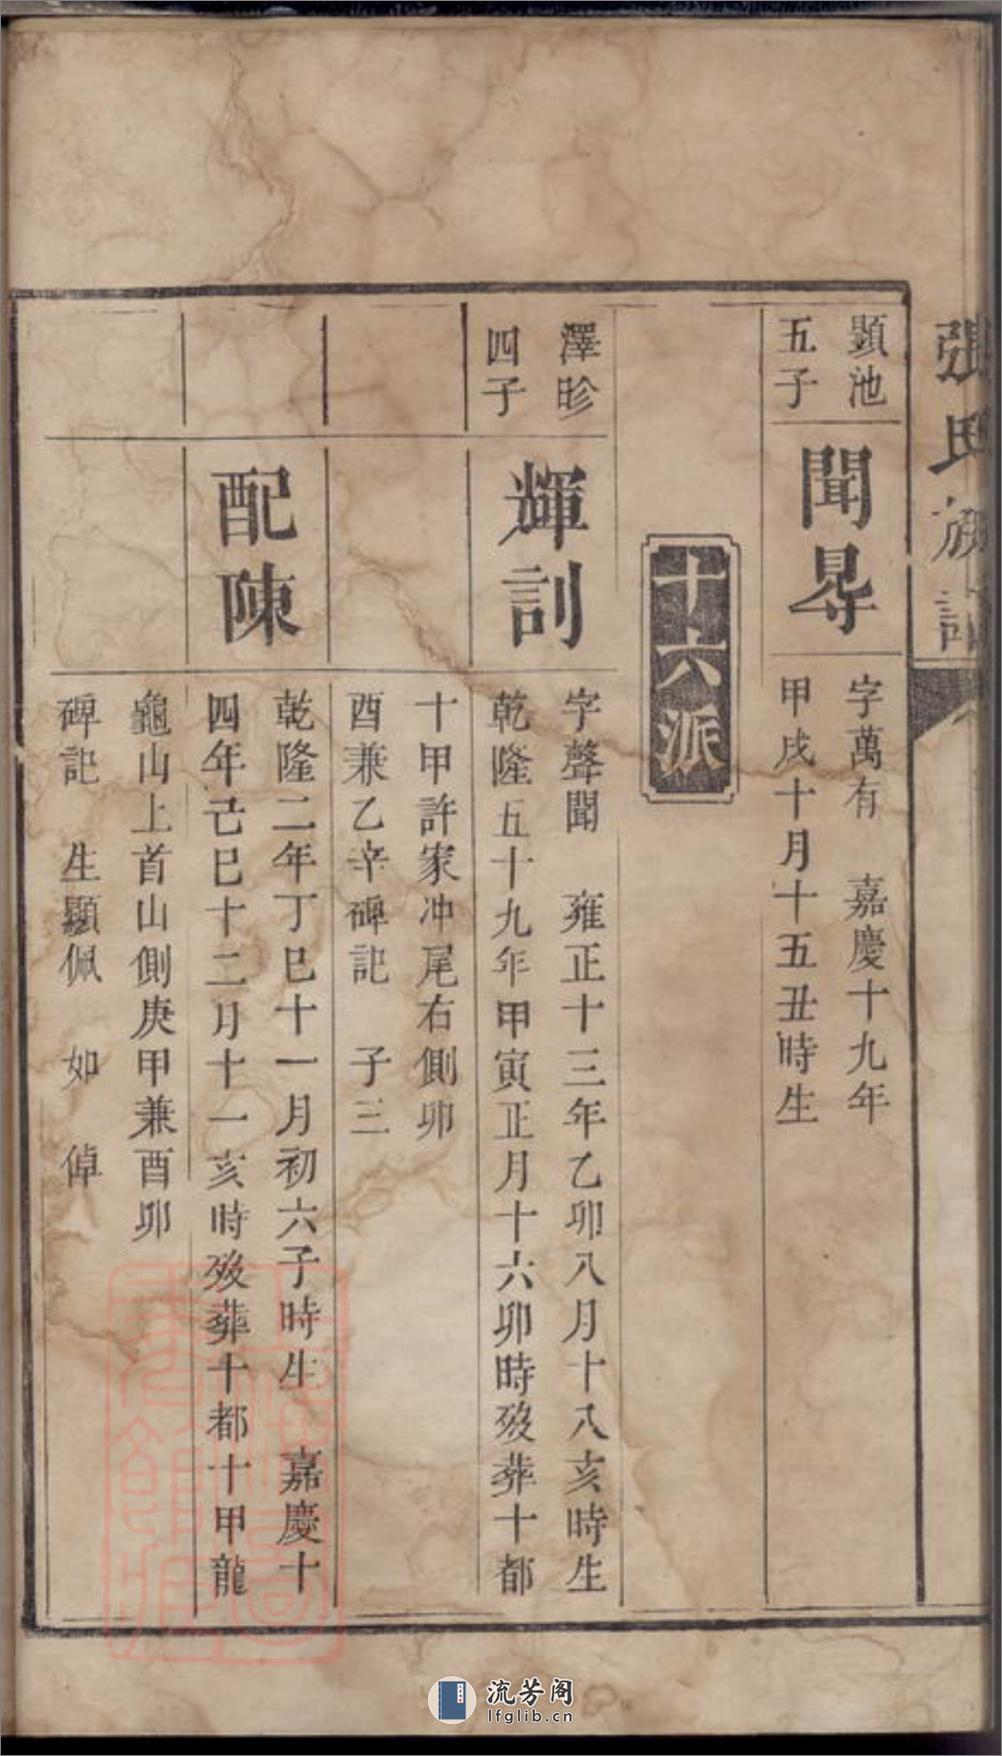 張氏族譜
顯池
五子
聞㝵
字萬有 嘉慶十九年
甲戌十月十五丑時生
十六派
澤昣
四子
輝訓
字聲聞 雍正十三年乙卯八月十八亥時生
乾隆五十九年甲寅正月十六卯時歿葬十都
十甲許家冲尾右側卯
酉兼乙辛碑記 子三
配陳
乾隆二年丁巳十一月初六子時生 嘉慶十
四年己巳十二月十一亥時歿葬十都十甲龍
龜山上首山側庚甲兼酉卯
碑記 生顯佩 如 倬
流芳阁
lfglib.cn